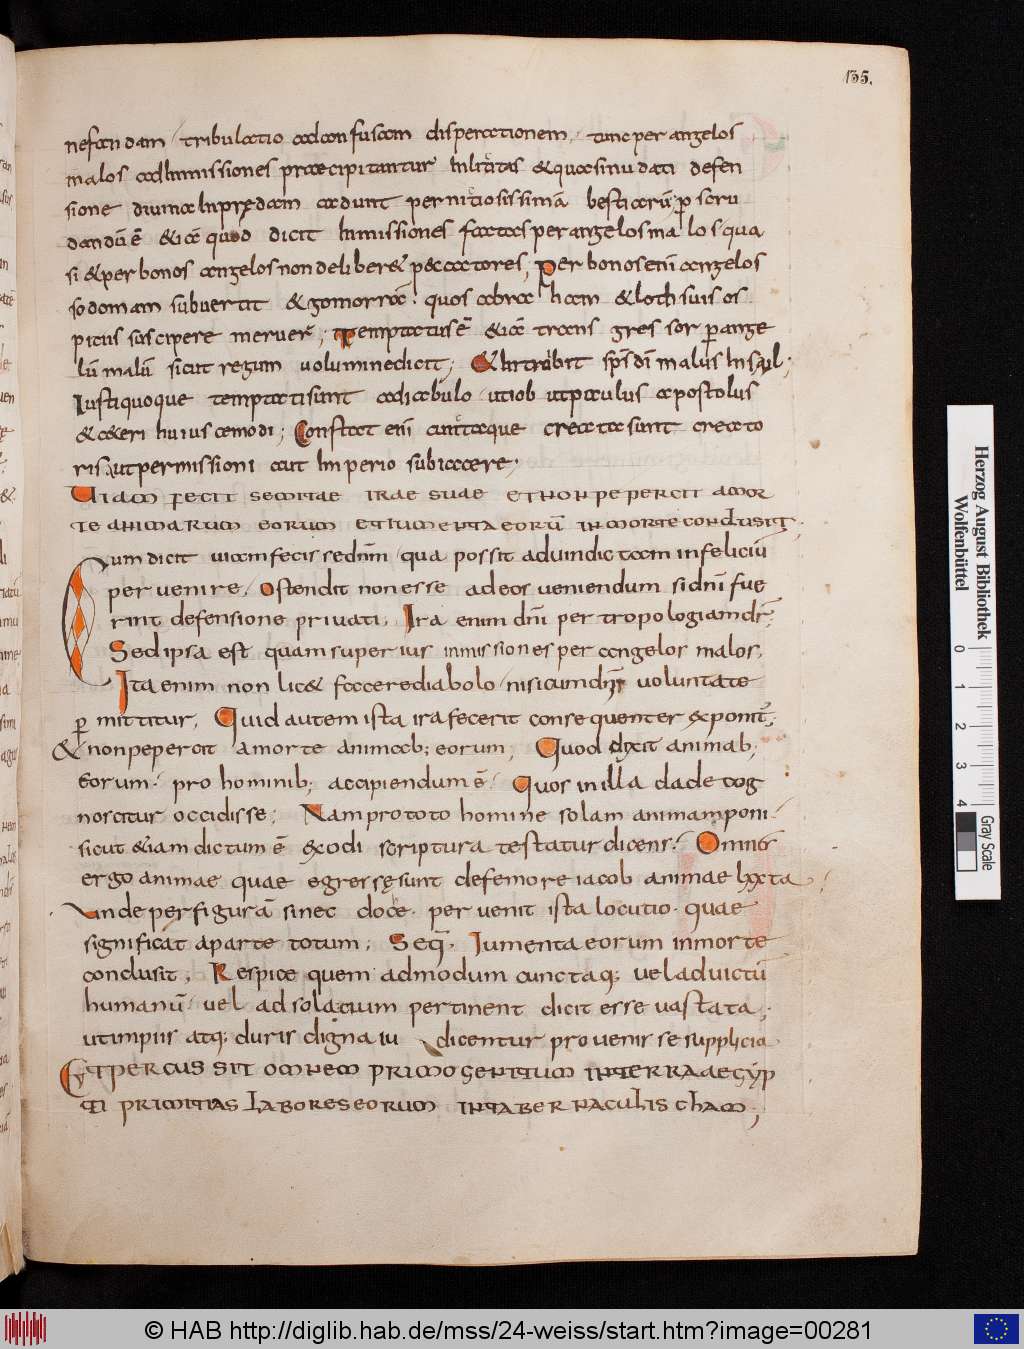 135.
nefandam tribulatio ad confusam disperationem. tunc per angelos
malos ad Inmissiones praecipitantur Inlritas &quasi nudati defen
sione diuina In prędam cadunt pernitiosissimā bestiarū; p̱ scru
dandū ē &iā quod dicit Inmissiones factas per angelos malos qua
si &per bonos angelos non deliber& peccatores, Per bonos enī angelos
sodomam subuertit &gomorra. quos abraham &loth suis os
pitiis suscipere meruer̄; Temptatus ē &iā transgressor p̱ ange
lū malū sicut regum uolumine dicit; &Intrabit sp̄s dī malus In saul;
Iusti quoque temptati sunt a diabulo ut iob ut paulus apostolus
&ceteri huius cemodi; Constat enī cuncta que creata sunt creato
ris aut permissioni aut Imperio subiacere;
Uiam fecit semitae irae suae et non pepercit amor
te animarum eorum et iumenta eorū in morte conclusit;
Cum dicit uiam fecisse dn̄m qua possit ad uindictam infeliciū
peruenire. Ostendit non esse ad eos ueniendum si dn̄i fue
rint defensione priuati. Ira enim dn̄i per tropologiam dr̄;
Sed ipsa est quam superius inmissiones per angelos malos.
Ita enim non lic& facere diabolo nisi cum dn̄i uoluntate
p̱mittitur. Quid autem ista ira fecerit consequenter exponit;
& non pepercit a morte animab; eorum; Quod dixit animab;
eorum. pro hominib; accipiendum ē. Quos in illa clade cog
noscitur occidisse; Nam pro toto homine solam animam poni.
sicut &iam dictum ē exodi scriptura testatur dicens. Omnis
ergo animae quae egressę sunt de femore iacob animae lxxta
unde per figurā sinec doce. peruenit ista locutio. quae
significat a parte totum; Seq̄. Iumenta eorum in morte
conclusit; Respice quem ad modum cuncta q; uel ad uictū
humanū uel ad solatium pertinent dicit esse uastata,
ut impiis atq; duris digna iudicentur prouenisse supplicia
Et percussit omnem primogenitum in terra aegyp
ti primitias labores eorum in tabernaculis cham;
Herzog August Bibliothek
Wolfenbüttel
0 1 2 3 4
Gray Scale
© HAB http://diglib.hab.de/mss/24-weiss/start.htm?image=00281